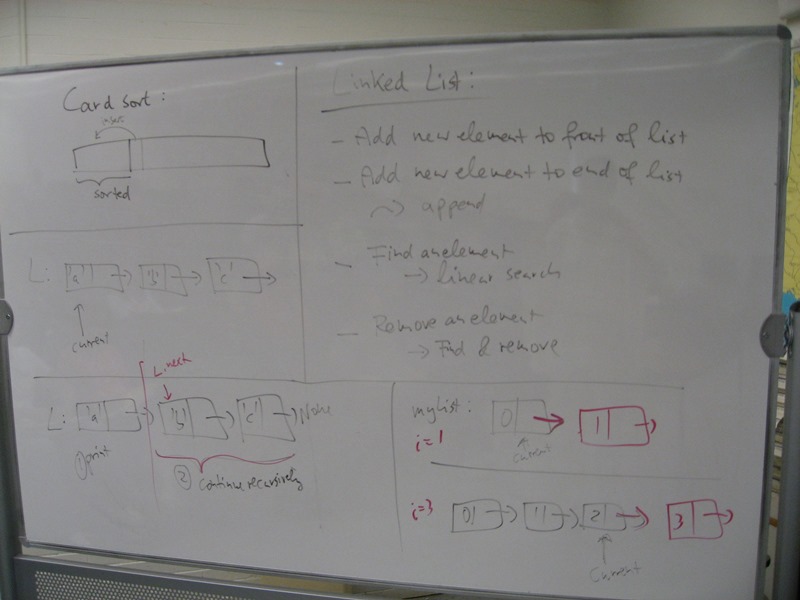 Card sort:
insert
sorted
L: 'a' 'b' 'c'
current
L.next
L: 'a' 'b' 'c' None
① print
② continue recursively
Linked List:
- Add new element to front of list
- Add new element to end of list
~> append
- Find an element
→ linear search
- Remove an element
→ Find & remove
mylist: 0 1
i=1
current
i=3 0 1 2 3
current